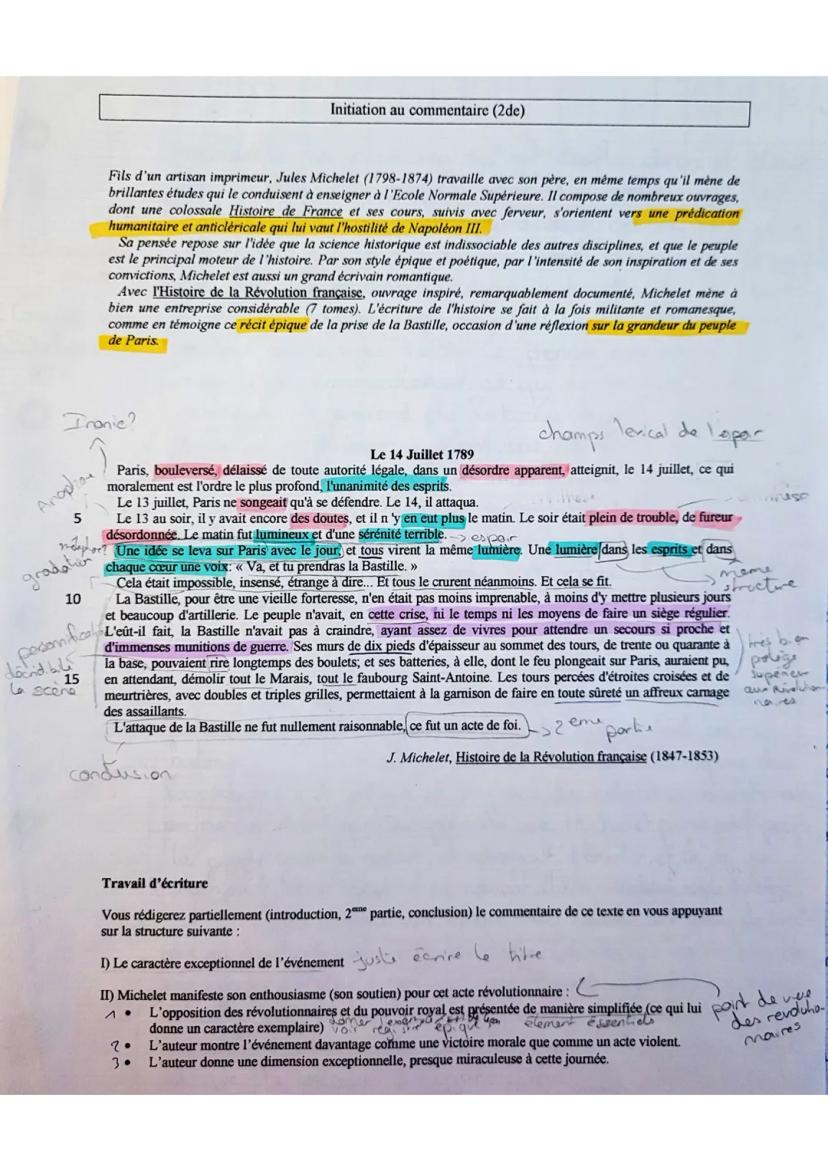 Initiation au commentaire (2de)
Fils d'un artisan imprimeur, Jules Michelet (1798-1874) travaille avec son père, en même temps qu'il mène de
brillantes études qui le conduisent à enseigner à l'Ecole Normale Supérieure. Il compose de nombreux ouvrages,
dont une colossale Histoire de France et ses cours, suivis avec ferveur, s'orientent vers une prédication
humanitaire et anticléricale qui lui vaut l'hostilité de Napoléon III.
Sa pensée repose sur l'idée que la science historique est indissociable des autres disciplines, et que le peuple
est le principal moteur de l'histoire. Par son style épique et poétique, par l'intensité de son inspiration et de ses
convictions, Michelet est aussi un grand écrivain romantique.
Avec l'Histoire de la Révolution française, ouvrage inspiré, remarquablement documenté, Michelet mène à
bien une entreprise considérable (7 tomes). L'écriture de l'histoire se fait à la fois militante et romanesque,
comme en témoigne ce récit épique de la prise de la Bastille, occasion d'une réflexion sur la grandeur du peuple
de Paris.
Ironie?
champs lexical de l'
Le 14 Juillet 1789
Paris, bouleversé, délaissé de toute autorité légale, dans un désordre apparent, atteignit, le 14 juillet, ce qui
moralement est l'ordre le plus profond, l'unanimité des esprits.
Le 13 juillet, Paris ne songeait qu'à se défendre. Le 14, il attaqua.
5 Le 13 au soir, il y avait encore des doutes, et il n'y en eut plus le matin. Le soir était plein de trouble, de fureur
désordonnée. Le matin fut lumineux et d'une sérénité terrible. -> espoir
Une idée se leva sur Paris avec le jour, et tous virent la même lumière. Une lumière dans les esprits et dans
chaque cœur une voix: « Va, et tu prendras la Bastille. »
même
structure
Cela était impossible, insensé, étrange à dire... Et tous le crurent néanmoins. Et cela se fit.
10 La Bastille, pour être une vieille forteresse, n'en était pas moins imprenable, à moins d'y mettre plusieurs jours
et beaucoup d'artillerie. Le peuple n'avait, en cette crise, ni le temps ni les moyens de faire un siège régulier.
L'eût-il fait, la Bastille n'avait pas à craindre, ayant assez de vivres pour attendre un secours si proche et
d'immenses munitions de guerre. Ses murs de dix pieds d'épaisseur au sommet des tours, de trente ou quarante à
la base, pouvaient rire longtemps des boulets; et ses batteries, à elle, dont le feu plongeait sur Paris, auraient pu,
15 en attendant, démolir tout le Marais, tout le faubourg Saint-Antoine. Les tours percées d'étroites croisées et de
meurtrières, avec doubles et triples grilles, permettaient à la garnison de faire en toute sûreté un affreux carnage
des assaillants.
la scène
très bien
L'attaque de la Bastille ne fut nullement raisonnable, ce fut un acte de foi. -> 2eme
partie
J. Michelet, Histoire de la Révolution française (1847-1853)
conclusion
Travail d'écriture
Vous rédigerez partiellement (introduction, 2eme partie, conclusion) le commentaire de ce texte en vous appuyant
sur la structure suivante :
I) Le caractère exceptionnel de l'événement juste écrire le titre
II) Michelet manifeste son enthousiasme (son soutien) pour cet acte révolutionnaire :
1 • L'opposition des révolutionnaires et du pouvoir royal est présentée de manière simplifiée (ce qui lui
donne un caractère exemplaire)
élément essentiels
point de vue
des révolution-
naires
2 • L'auteur montre l'événement davantage comme une victoire morale que comme un acte violent.
3 • L'auteur donne une dimension exceptionnelle, presque miraculeuse à cette journée.